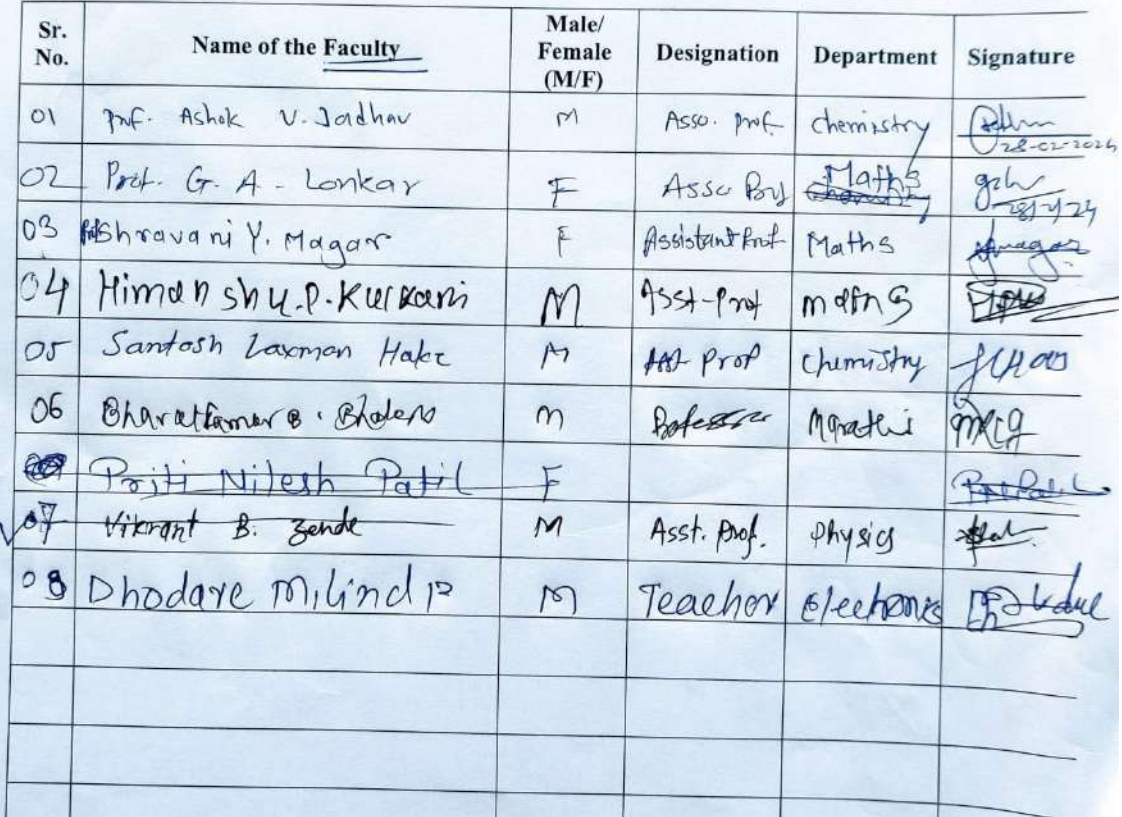 Sr. No. Name of the Faculty Male/ Female (M/F) Designation Department Signature
01 Prof. Ashok V. Jadhav M Asso. Prof Chemistry 28-02-2024
02 Prof. G. A. Lonkar F Asso Maths
03 Shravani Y. Magar F Assistant Prof Maths
04 Himanshu.P.Kulkarni M Asst-Prof maths
05 Santosh Laxman Hake M Asst Prof Chemistry
06 Bharatkumar B. M Professor Marathi
Priti Nilesh Patil F
07 Vikrant B. Zende M Asst. Prof. Physics
08 Dhodare Milind P M Teacher Electronics